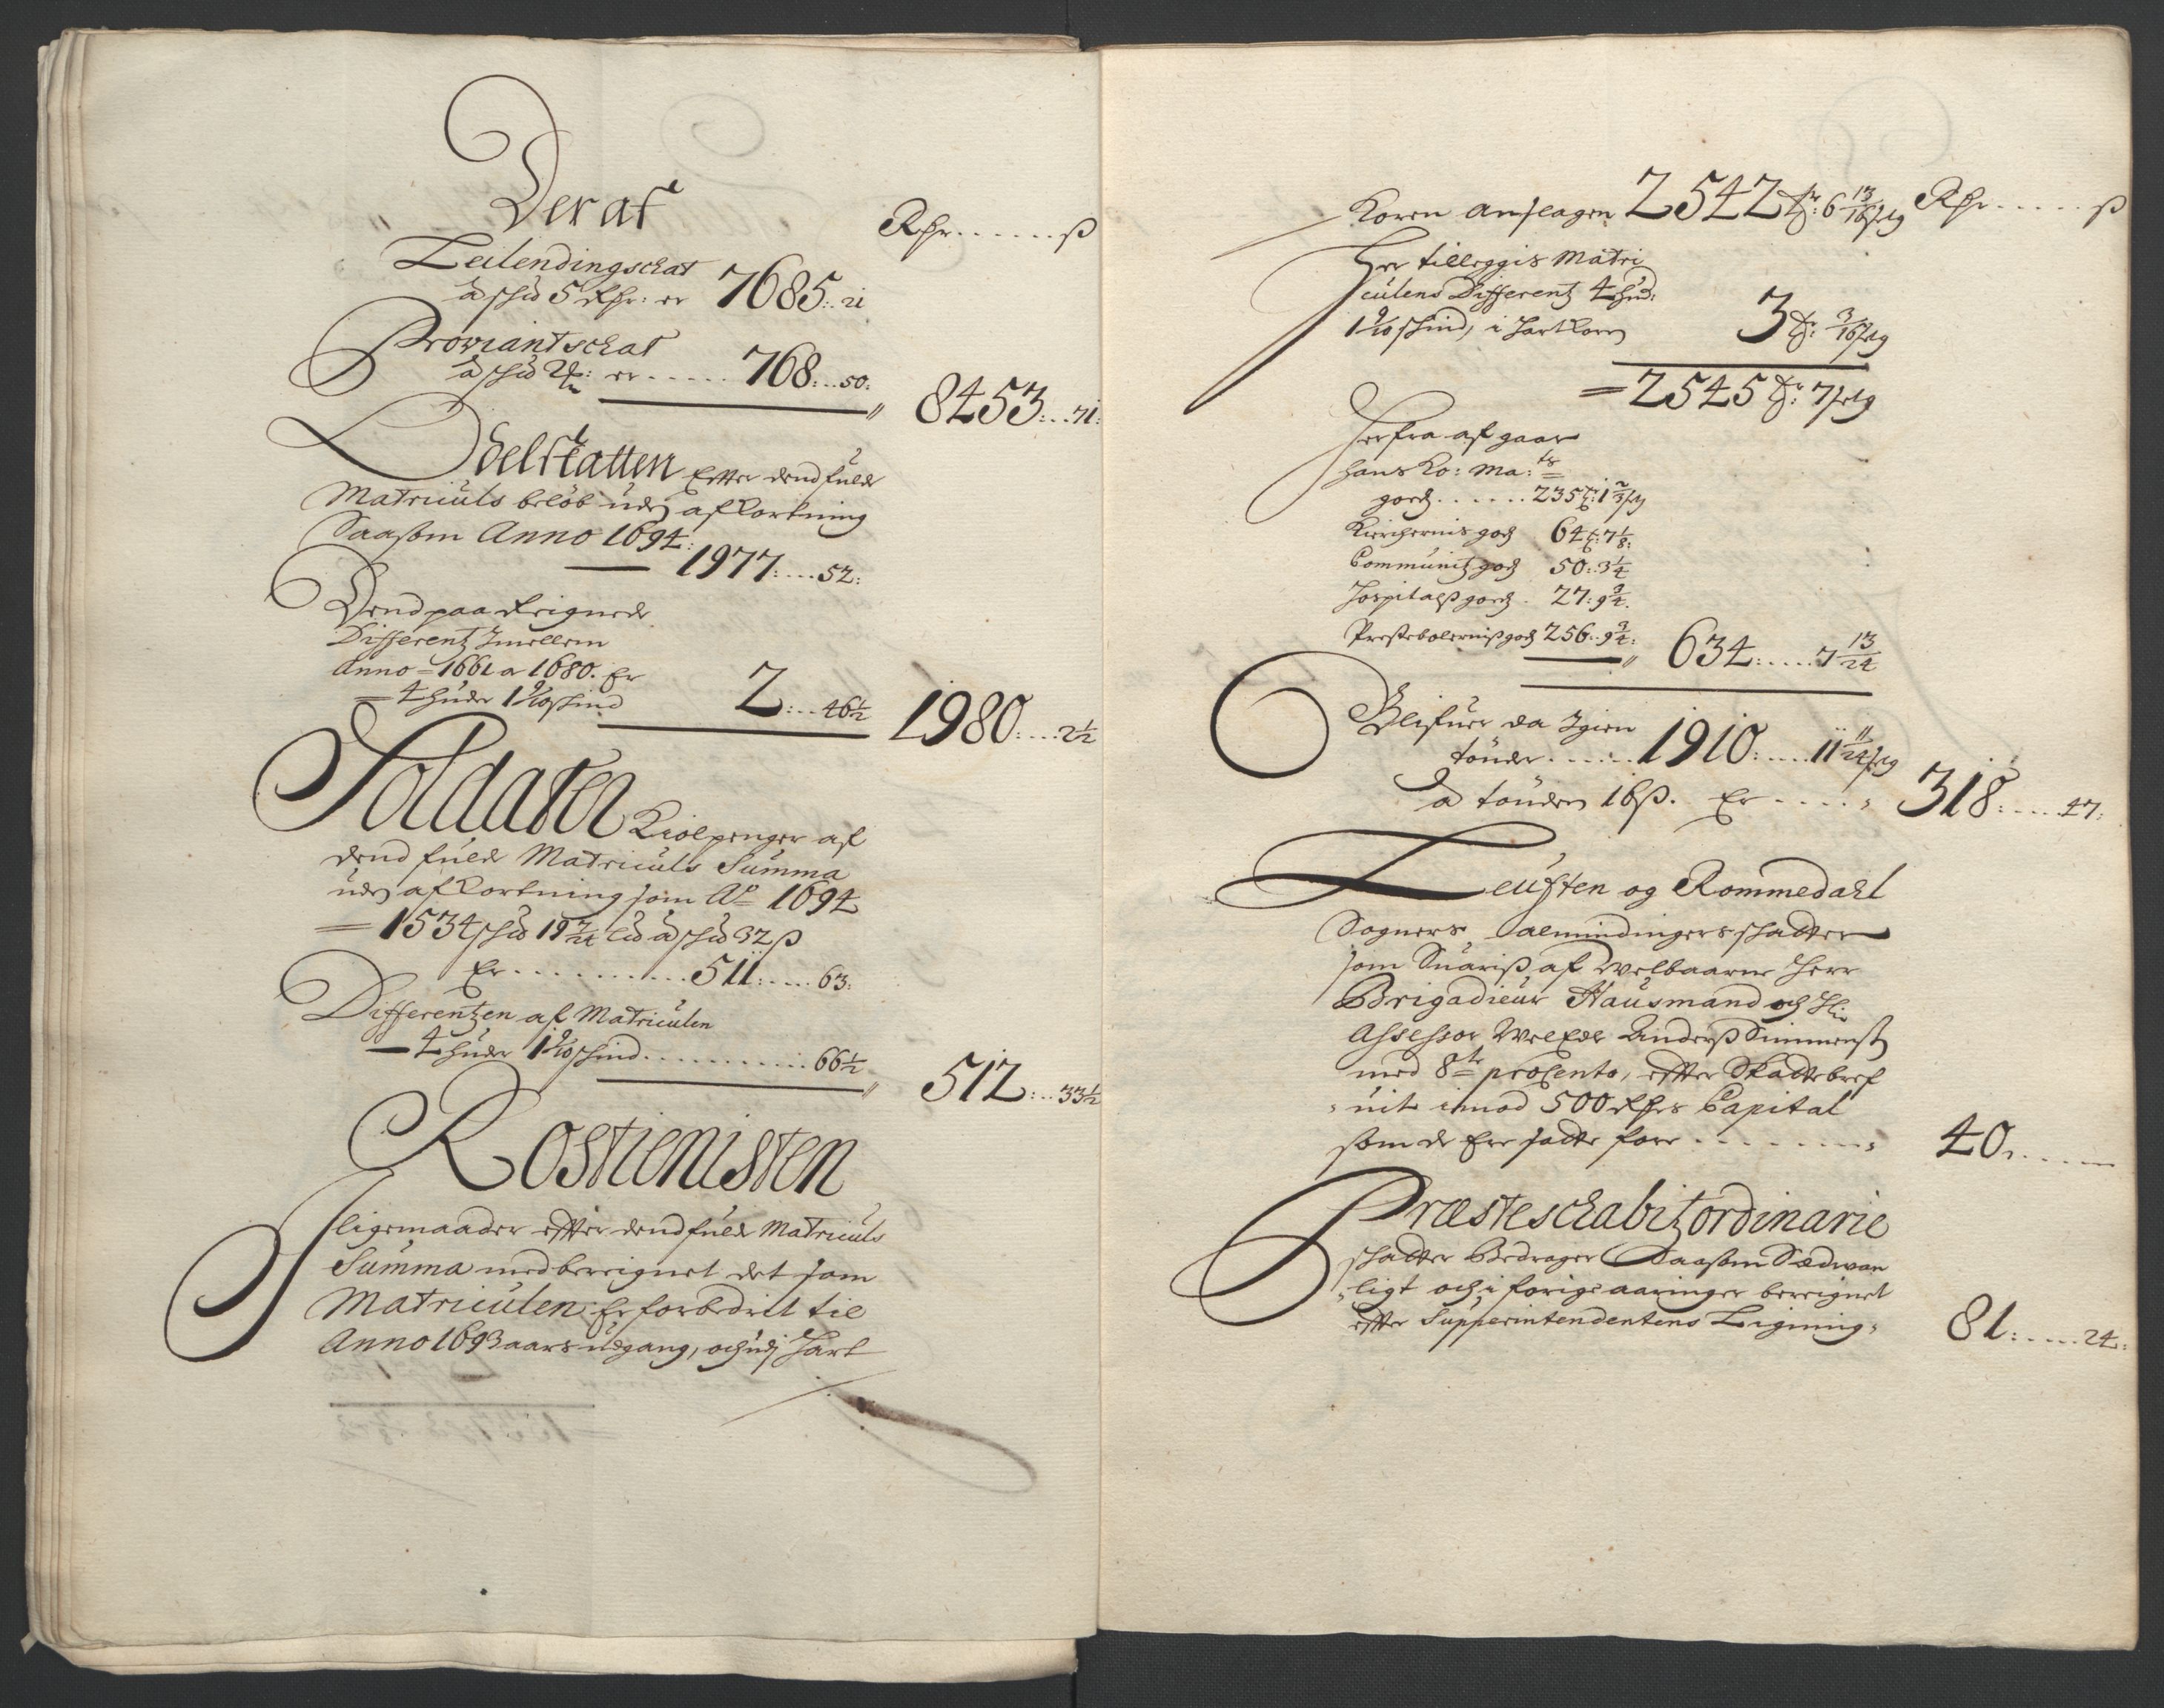 Deraf
Rdr......ß
Leilendingschat
à schd 5 Rdr: er 7685: 21
Proviantschat
à schd ...... 768:..50:
8453:..71:
Odelskatten Efter dend fulde
Matriculs beløb uden afkortning
Saasom Anno 1694:
1977:....52:
Dend paa Reignede
Differentz Imellem
Anno 1661 a 1680. Er
4 huder 1 9/10 skind 2:...46½
1980:....2½
Soldater Kiolpenger af
dend fulde Matriculs Summa
uden afkortning som Ao 1694
= 1534 schd 19 7/24 Lid à schd 32 ß
Er...........511:....63:
Differentzen af Matriculen
4 huder 1 9/10 skind............66½
512:..33½
Rostienisten
I ligemaader efter dend fulde Matriculs
Summa medbereignet det som
Matriculen Er forbedrit til
Anno 1693 aars udgang, och udj Hart
Koren anslagen 2542 Tr: 6 13/16 setg Rdr.....ß
Her tilleggis Matri
culens Differentz 4 hud:
1 9/10 skind, i hartkorn 3 Tr: 3/16 setg
= 2545 Tr: 7 setg
Herfra afgaar
hans Ko: Ma: ts
godz......235 T: 1 2/3 s
Kirchernis godz 64 T: 7 1/8:
Communitz godz 50: 3 1/4
Hospitals godz. 27: 9 3/4.
Prestebolernis godz 256. 9 3/4:
634:....7 13/24
Blifuer da Igien
tønder......1910:....11 11/24 setg
à tønden 16 ß. Er....
318:....47:
Leusten og Rommedahl
Sogners Almindingers skatter
som Suaris af Welbaarne Herr
Brigadieur Hausmand och Hr
Assessor Welædle Anders Simmensen
med 8te procento, efter Skattebref
uit imod 500 Rdrs Capital
som de Ere satte for.......
40.....
Præsteschabitz ordinarie
skatter Bedrager Saasom Sædwan
ligt och i forige aaringer bereignet
efter Supperintendentens Ligning,
81:.....24: